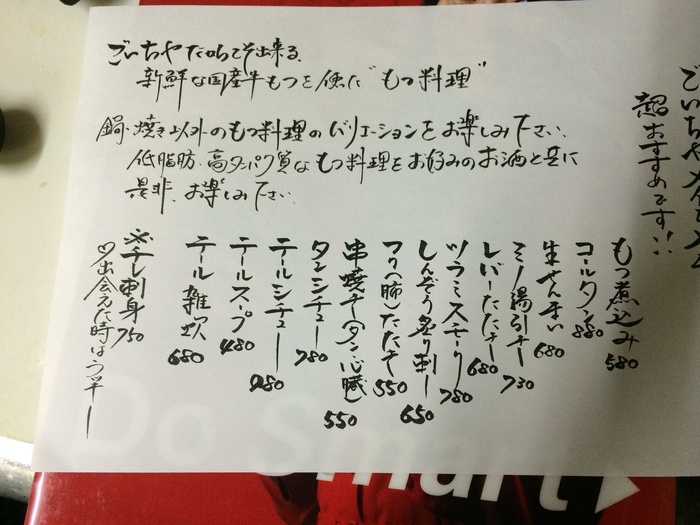 ごいちやだからこそ出来る、
新鮮な国産牛もつを使た"もつ料理"
鍋・焼き以外のもつ料理のバリエーションをお楽しみ下さい。
低脂肪・高タンパク質なもつ料理をお好みのお酒と共に
是非、お楽しみ下さい。
ごいちや
超おすすめです!!
もつ煮込み 580
コールタン 880
生せんまい 680
ミノ湯引き 730
レバーたたき 680
ツラミステーキ 780
しんぞう炙り刺し 650
フワ(肺)たたき 550
串焼き(タン、心臓) 550
タンシチュー 780
テールシチュー 980
テールスープ 480
テール雑炊 680
※チレ刺身 750
出会えた時はラッキー
Do Smart